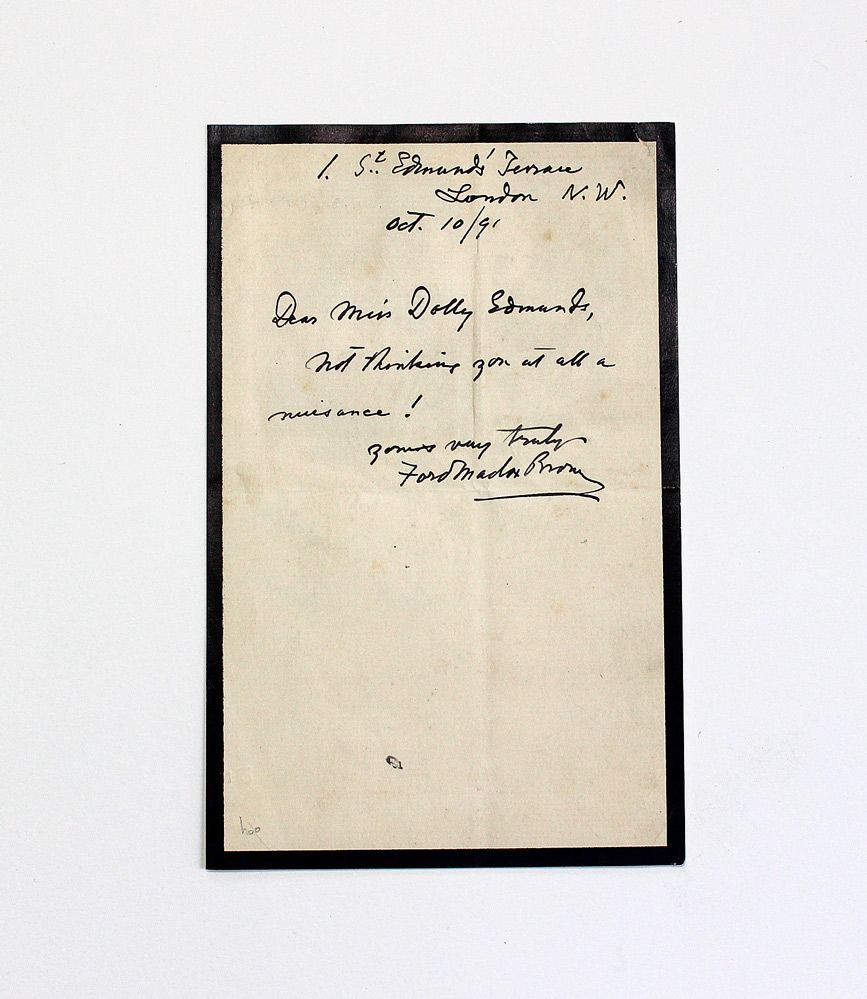 1. St. Edmunds' Terrace
London N.W.
Oct. 10/91
Dear Miss Dolly Edmunds,
Not thinking you at all a
nuisance!
yours very truly
Ford Madox Brown